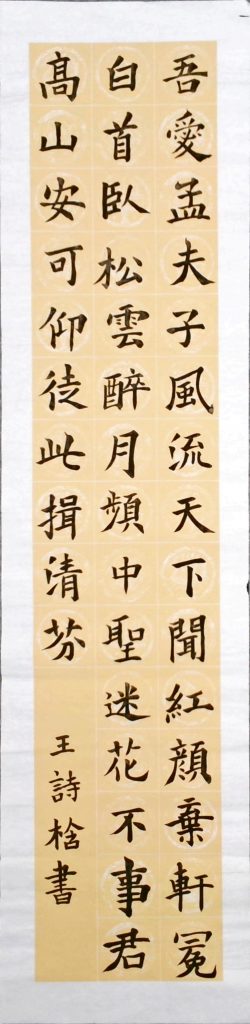 吾愛孟夫子風流天下聞紅顏棄軒冕
白首臥松雲醉月頻中聖迷花不事君
高山安可仰徒此揖清芬
王詩桧書